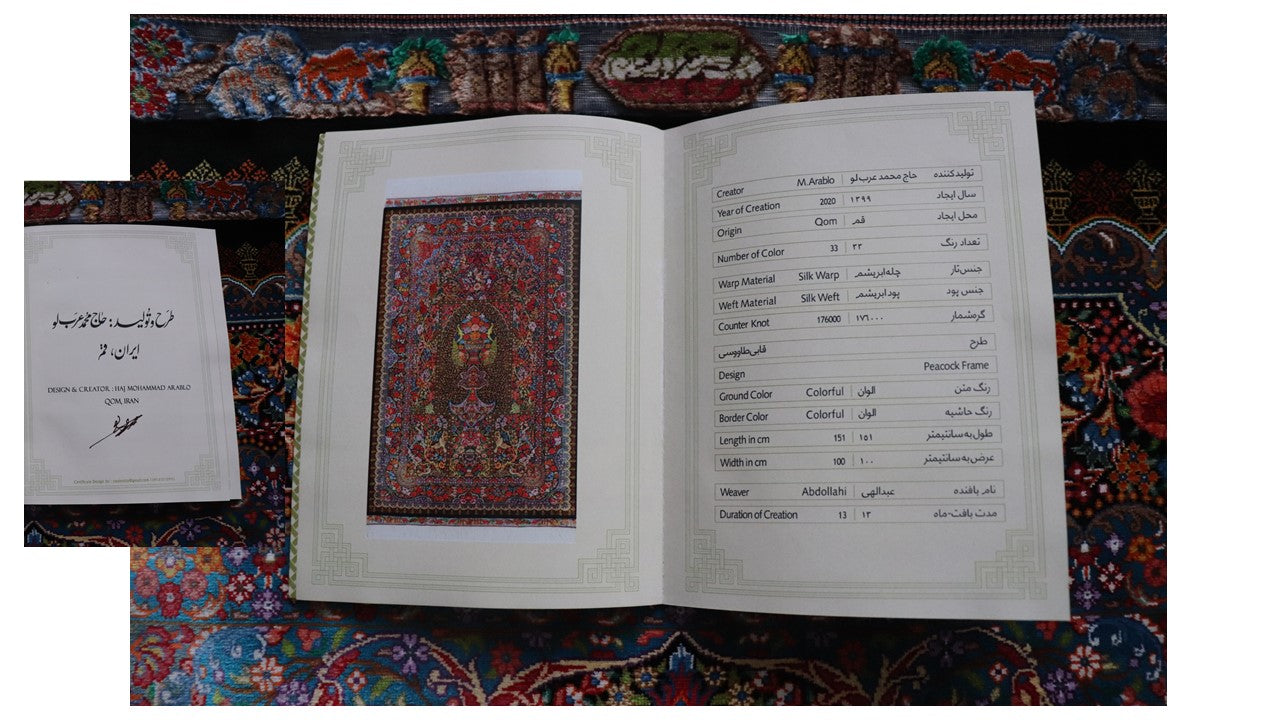 طرح و تولید : حاج محمد عرب لو
ایران، قم
DESIGN & CREATOR : HAJ MOHAMMAD ARABLO
QOM, IRAN
Creator M.Arablo حاج محمد عرب‌لو تولیدکننده
Year of Creation 2020 ۱۳۹۹ سال ایجاد
Origin Qom قم محل ایجاد
Number of Color 33 ۳۳ تعداد رنگ
Warp Material Silk Warp چله‌ابریشم جنس‌تار
Weft Material Silk Weft پودابریشم جنس پود
Counter Knot 176000 ۱۷۶۰۰۰ گره‌شمار
قابی‌طاووسی طرح
Design Peacock Frame
Ground Color Colorful الوان رنگ متن
Border Color Colorful الوان رنگ حاشیه
Length in cm 151 ۱۵۱ طول‌به‌سانتیمتر
Width in cm 100 ۱۰۰ عرض‌به‌سانتیمتر
Weaver Abdollahi عبدالهی نام بافنده
Duration of Creation 13 ۱۳ مدت بافت-ماه